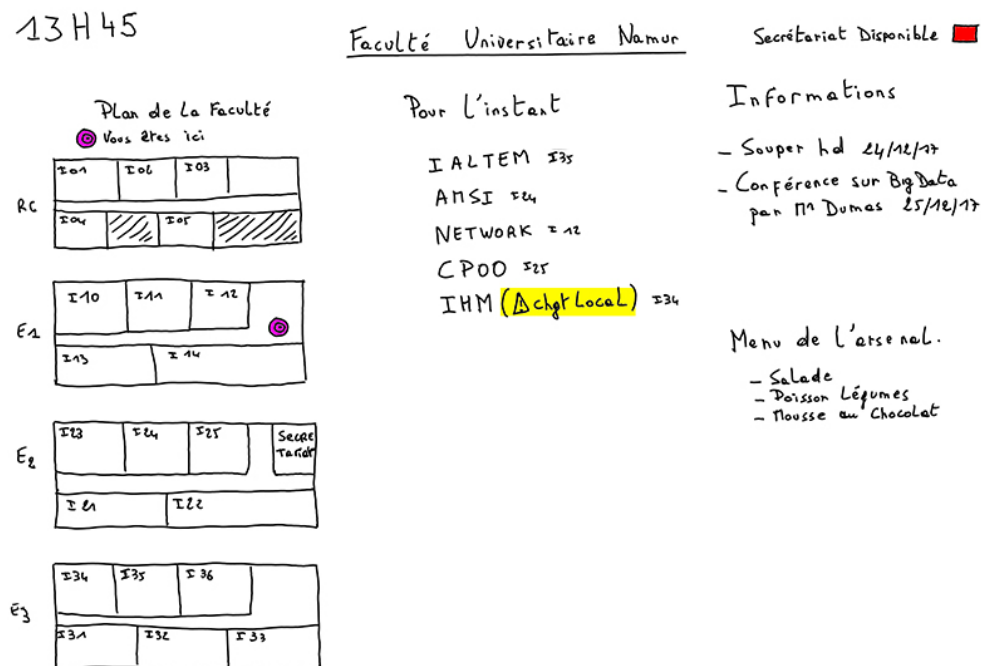 13H45
Faculté Universitaire Namur
Secrétariat Disponible
Plan de La Faculté
Vous êtes ici
RC
I01 I02 I03
I04 I05
E1
I10 I11 I12
I13 I14
E2
I23 I24 I25 Secre
tariat
I21 I22
E3
I34 I35 I36
I31 I32 I33
Pour l'instant
IALTEM I35
AMSI I24
NETWORK I12
CPOO I25
IHM (⚠ chgt Local) I34
Informations
- Souper hd 24/12/17
- Conférence sur Big Data
par Mr Dumas 25/12/17
Menu de l'arsenal.
- Salade
- Poisson Légumes
- Mousse au Chocolat